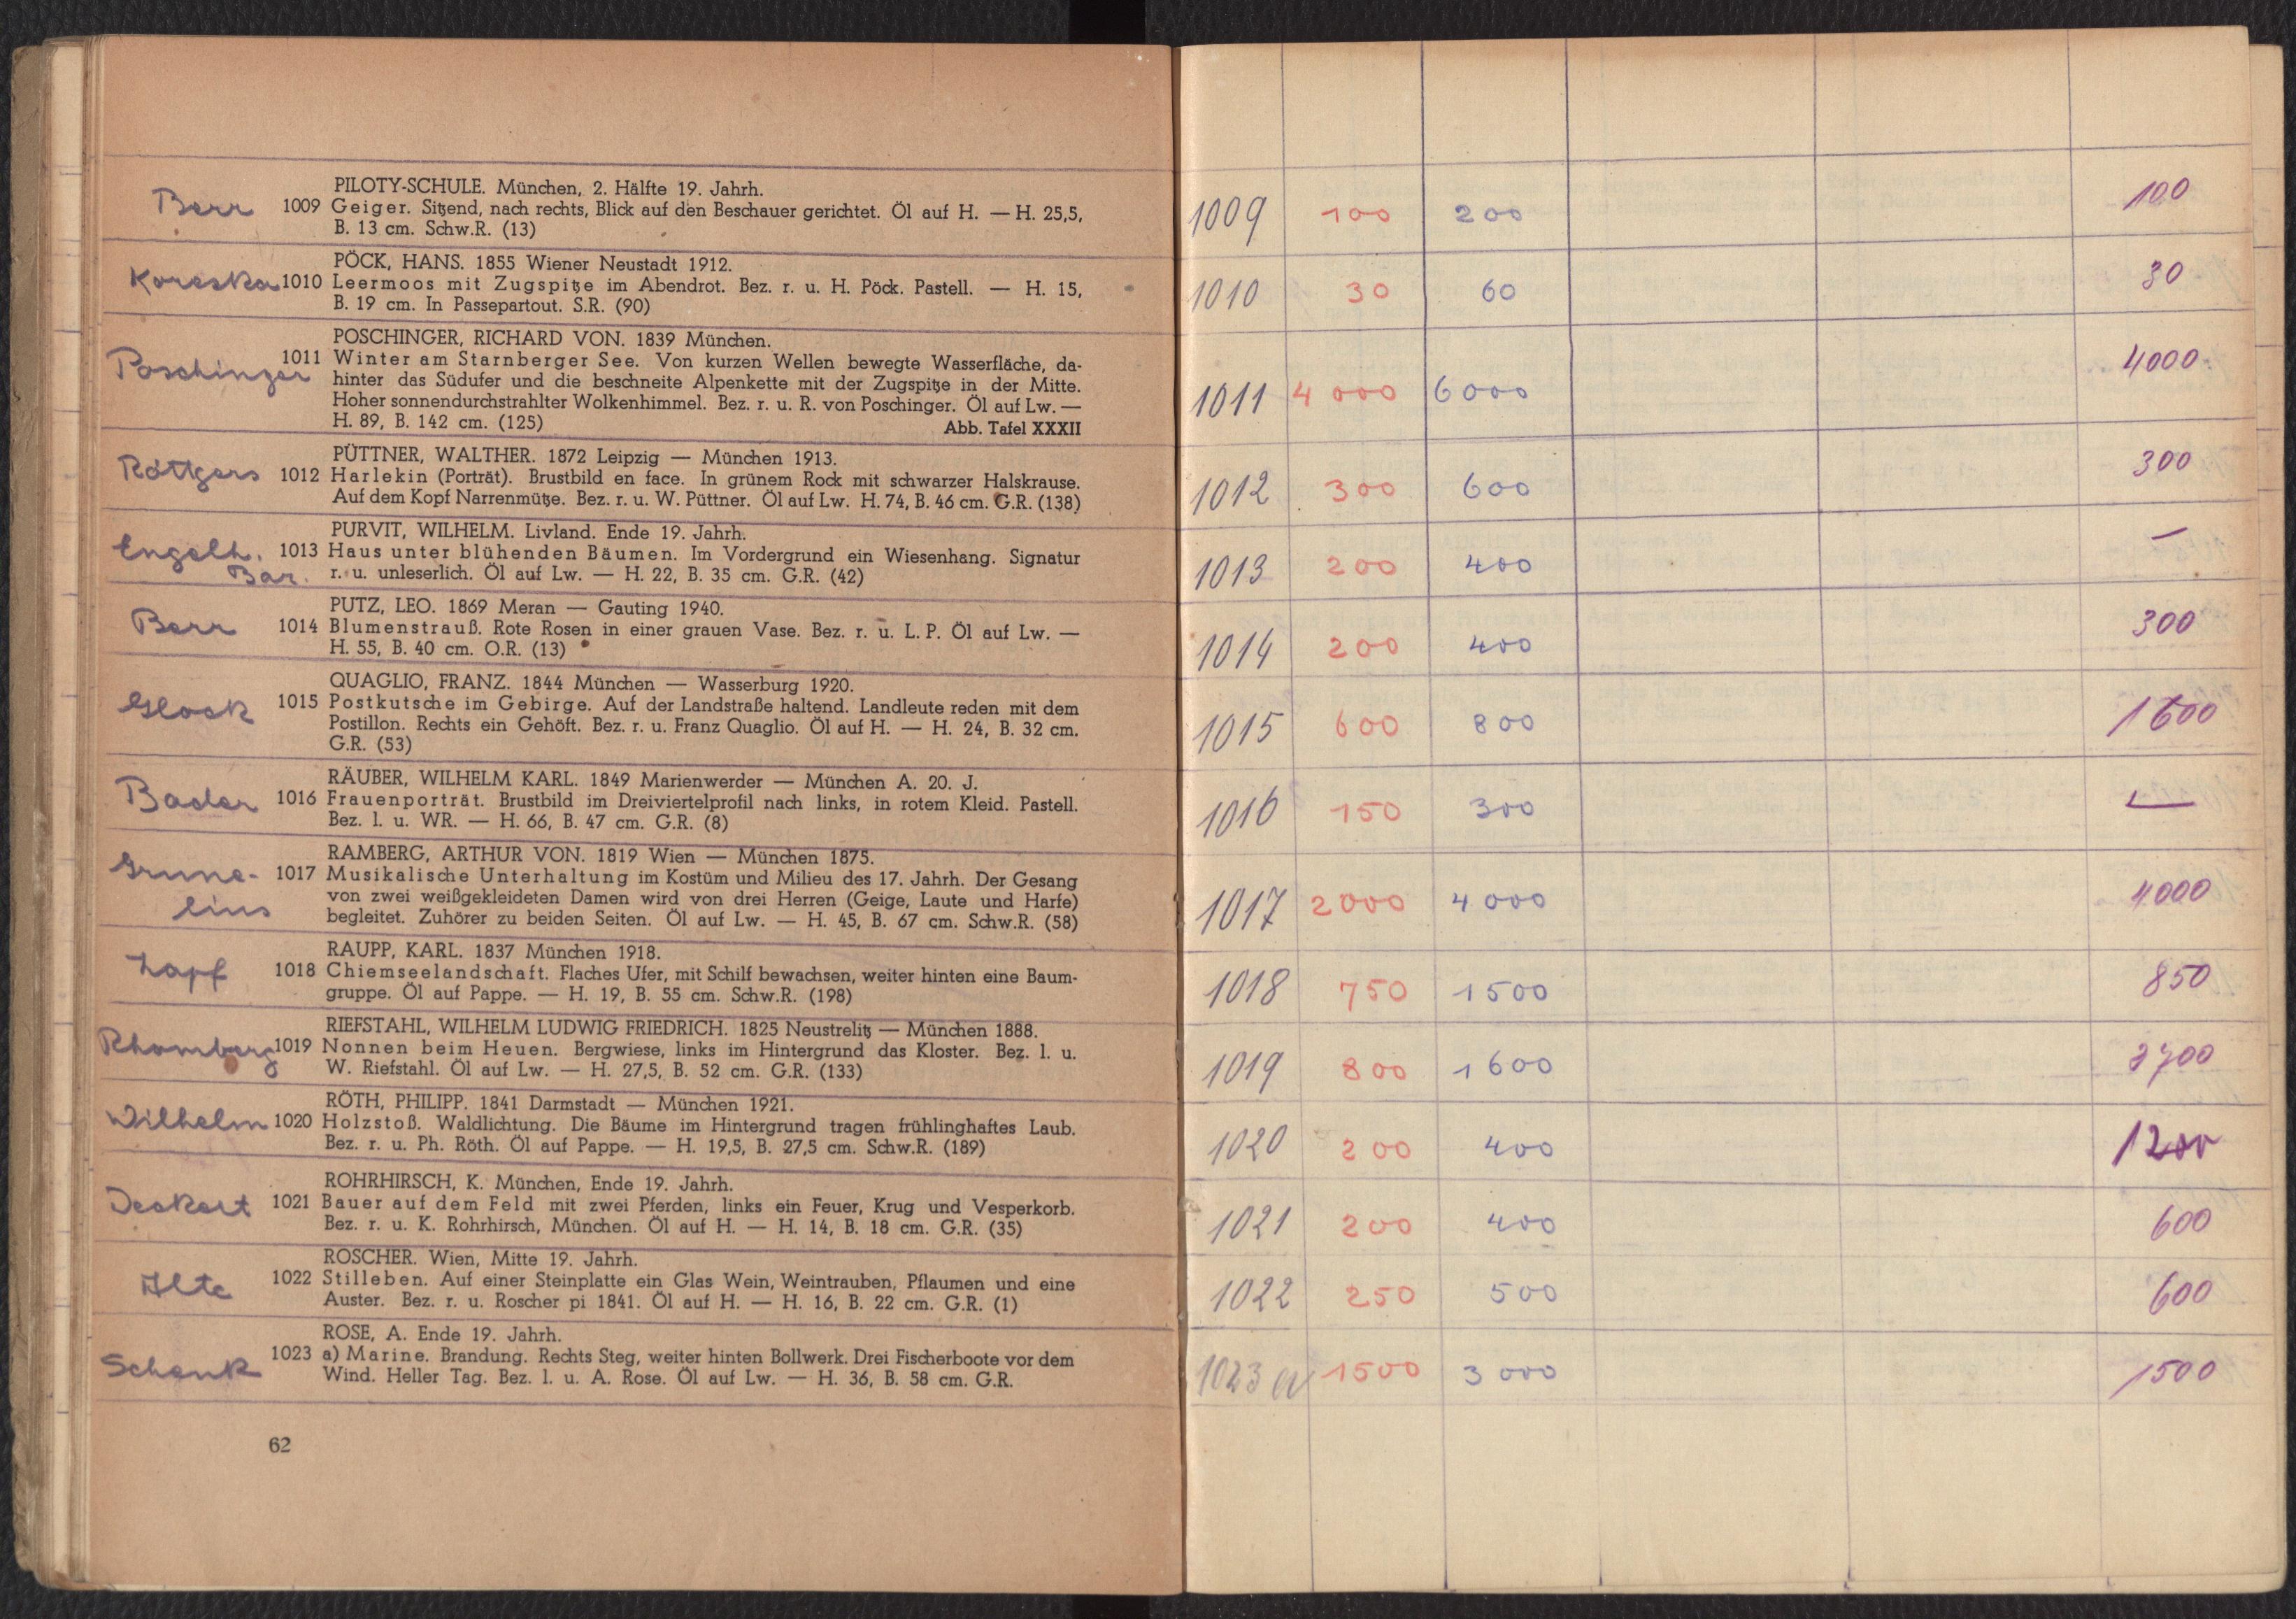 PILOTY-SCHULE. München, 2. Hälfte 19. Jahrh.
Berr 1009 Geiger. Sitzend, nach rechts, Blick auf den Beschauer gerichtet. Öl auf H. — H. 25,5,
B. 13 cm. Schw.R. (13)
PÖCK, HANS. 1855 Wiener Neustadt 1912.
Koreska 1010 Leermoos mit Zugspitze im Abendrot. Bez. r. u. H. Pöck. Pastell. — H. 15,
B. 19 cm. In Passepartout. S.R. (90)
POSCHINGER, RICHARD VON. 1839 München.
Poschinger 1011 Winter am Starnberger See. Von kurzen Wellen bewegte Wasserfläche, da-
hinter das Südufer und die beschneite Alpenkette mit der Zugspitze in der Mitte.
Hoher sonnendurchstrahlter Wolkenhimmel. Bez. r. u. R. von Poschinger. Öl auf Lw. —
H. 89, B. 142 cm. (125) Abb. Tafel XXXII
PÜTTNER, WALTHER. 1872 Leipzig — München 1913.
Röttgers 1012 Harlekin (Porträt). Brustbild en face. In grünem Rock mit schwarzer Halskrause.
Auf dem Kopf Narrenmütze. Bez. r. u. W. Püttner. Öl auf Lw. H. 74, B. 46 cm. G.R. (138)
PURVIT, WILHELM. Livland. Ende 19. Jahrh.
Engelh. 1013 Haus unter blühenden Bäumen. Im Vordergrund ein Wiesenhang. Signatur
Bar. r. u. unleserlich. Öl auf Lw. — H. 22, B. 35 cm. G.R. (42)
PUTZ, LEO. 1869 Meran — Gauting 1940.
Berr 1014 Blumenstrauß. Rote Rosen in einer grauen Vase. Bez. r. u. L. P. Öl auf Lw. —
H. 55, B. 40 cm. O.R. (13)
QUAGLIO, FRANZ. 1844 München — Wasserburg 1920.
Glock 1015 Postkutsche im Gebirge. Auf der Landstraße haltend. Landleute reden mit dem
Postillon. Rechts ein Gehöft. Bez. r. u. Franz Quaglio. Öl auf H. — H. 24, B. 32 cm.
G.R. (53)
RÄUBER, WILHELM KARL. 1849 Marienwerder — München A. 20. J.
Bader 1016 Frauenporträt. Brustbild im Dreiviertelprofil nach links, in rotem Kleid. Pastell.
Bez. l. u. WR. — H. 66, B. 47 cm. G.R. (8)
RAMBERG, ARTHUR VON. 1819 Wien — München 1875.
Grune- 1017 Musikalische Unterhaltung im Kostüm und Milieu des 17. Jahrh. Der Gesang
lius von zwei weißgekleideten Damen wird von drei Herren (Geige, Laute und Harfe)
begleitet. Zuhörer zu beiden Seiten. Öl auf Lw. — H. 45, B. 67 cm. Schw.R. (58)
RAUPP, KARL. 1837 München 1918.
Zapf 1018 Chiemseelandschaft. Flaches Ufer, mit Schilf bewachsen, weiter hinten eine Baum-
gruppe. Öl auf Pappe. — H. 19, B. 55 cm. Schw.R. (198)
RIEFSTAHL, WILHELM LUDWIG FRIEDRICH. 1825 Neustrelitz — München 1888.
Rhomberg 1019 Nonnen beim Heuen. Bergwiese, links im Hintergrund das Kloster. Bez. l. u.
W. Riefstahl. Öl auf Lw. — H. 27,5, B. 52 cm. G.R. (133)
RÖTH, PHILIPP. 1841 Darmstadt — München 1921.
Wilhelm 1020 Holzstoß. Waldlichtung. Die Bäume im Hintergrund tragen frühlinghaftes Laub.
Bez. r. u. Ph. Röth. Öl auf Pappe. — H. 19,5, B. 27,5 cm. Schw.R. (189)
ROHRHIRSCH, K. München, Ende 19. Jahrh.
Deckert 1021 Bauer auf dem Feld mit zwei Pferden, links ein Feuer, Krug und Vesperkorb.
Bez. r. u. K. Rohrhirsch, München. Öl auf H. — H. 14, B. 18 cm. G.R. (35)
ROSCHER. Wien, Mitte 19. Jahrh.
1022 Stilleben. Auf einer Steinplatte ein Glas Wein, Weintrauben, Pflaumen und eine
Auster. Bez. r. u. Roscher pi 1841. Öl auf H. — H. 16, B. 22 cm. G.R. (1)
ROSE, A. Ende 19. Jahrh.
Schenk 1023 a) Marine. Brandung. Rechts Steg, weiter hinten Bollwerk. Drei Fischerboote vor dem
Wind. Heller Tag. Bez. l. u. A. Rose. Öl auf Lw. — H. 36, B. 58 cm. G.R.
62
1009 100 200 100
1010 30 60 30
1011 4000 6000 4000
1012 300 600 300
1013 200 400 —
1014 200 400 300
1015 600 800 1600
1016 150 300 —
1017 2000 4000 4000
1018 750 1500 850
1019 800 1600 2700
1020 200 400 1200
1021 200 400 600
1022 250 500 600
1023 a 1500 3000 1500